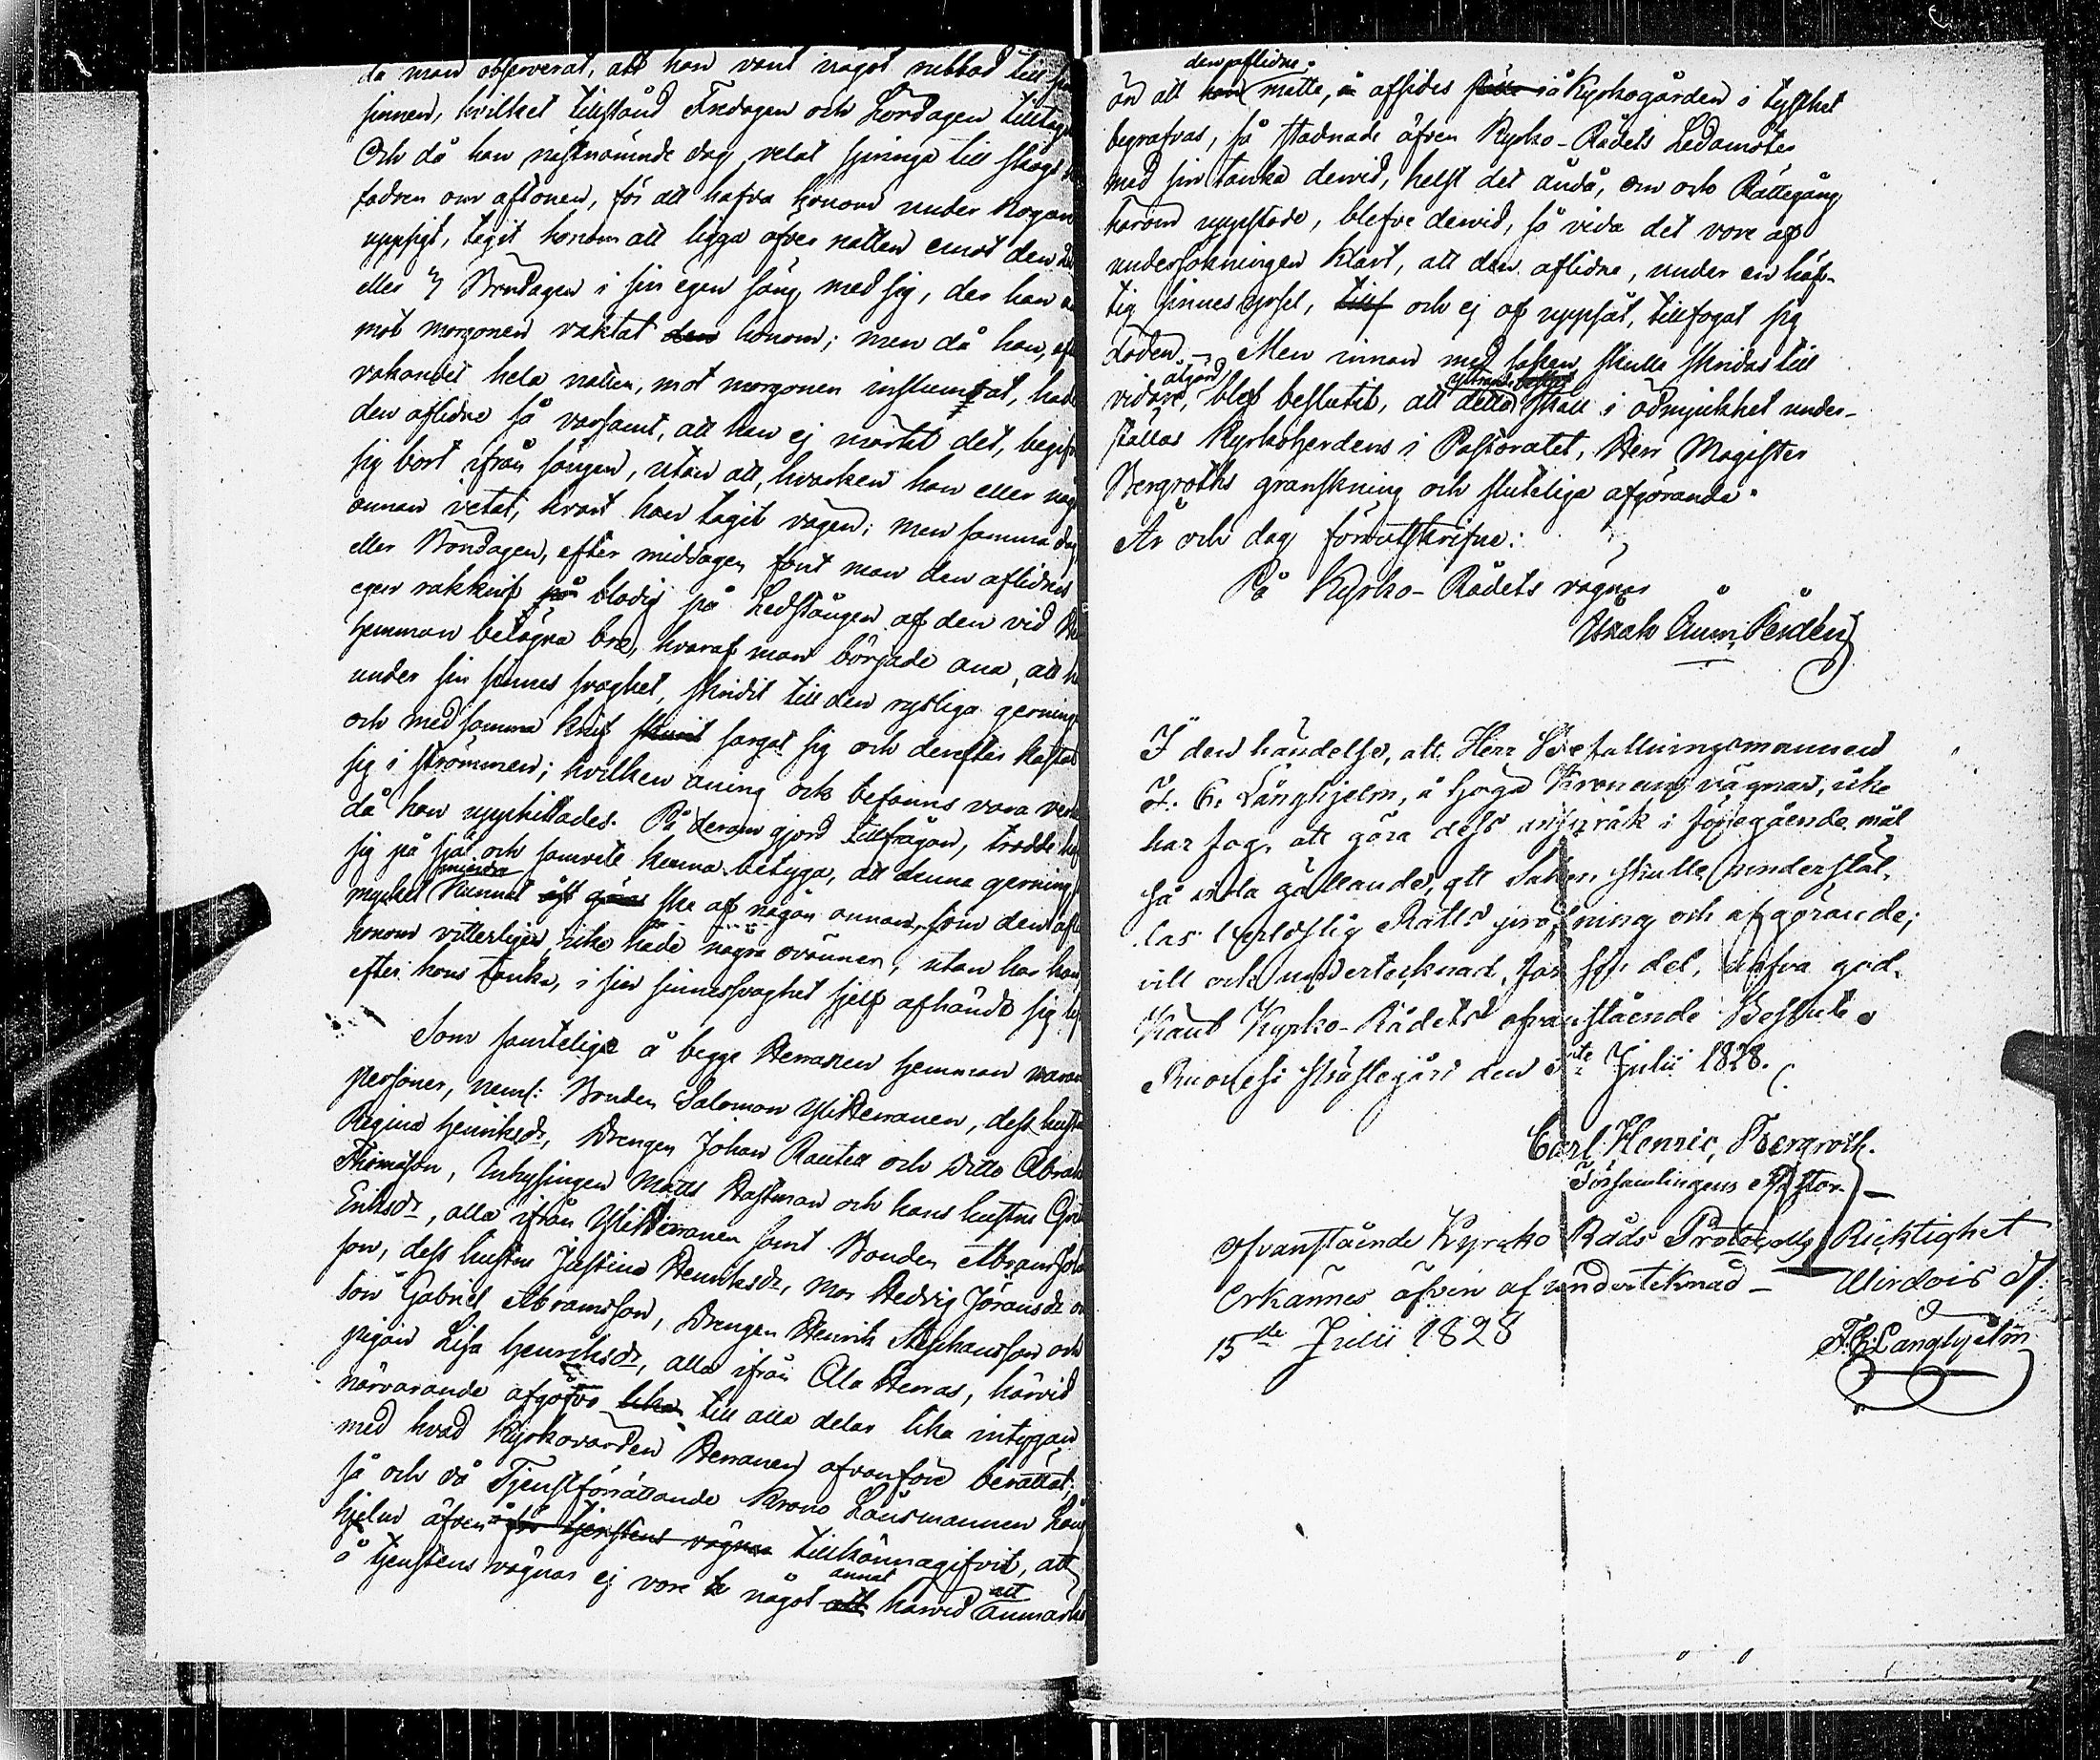 da man observerat, att han varit något rubbad till
sinnen, hvilket tillstånd Fredagen och Lördagen tilltagit
Och då han nästnämnde dag velat springa till skogs
fadren om aftonen, för att hafva honom under noga
uppsigt, tagit honom att ligga öfver natten emot den
eller Söndagen i sin egen säng med sig, der han
mot morgonen vaktat den honom; men då han,
vakandet hela natten, mot morgonen inslumrat, hade
den aflidne så varsamt, att han ej märkt det, begifvit
sig bort ifrån sängen, utan att, hvarken han eller någon
annan vetat, hvart han tagit vägen; men samma dag
eller Söndagen, efter middagen fant man den aflidnes
egen rakknif på blodig på Ledstången af den vid
hemman belägna bro, hvaraf man började ana, att
under sin sinnes svaghet, skridit till den rysliga gerning
och med samma knif skurit sargat sig och derefter kastat
sig i strömmen; hvilken aning ock befanns vara
då han upphittades. På derom gjord tillfrågan, trodde
sig på själ och samvete kunna betyga, att denna gerning
mycket mindre kunnat ske af någon annan, som den
honom vitterligen icke hade några ovänner, utan har han
efter hans tanka, i sin sinnessvaghet sjelf afhändt sig
Som samtelige å begge Herranen hemman
personer, neml: Bonden Salomon YliHerranen, dess hustru
Regina Henriksdr, Drengen Johan Rautell och Ditto Abraham
Thomasson, Inhysingen Matts Hastman och hans hustru
Eriksdr, alla ifrån YliHerranen samt Bonden Abram
son, dess hustru Justina Henriksdr, Mor Hedvig Jöransdr
son Gabriel Abramsson, Drengen Henrik Stephansson och
pigan Lisa Henriksdr, alla ifrån Ala Herras, härvid
närvarande afgofvo lika till alla delar lika intygan
med hvad Kyrkovärden Herranen ofvanföre berättat;
så och då Tjenstförrättande Krono Länsmannen Lång
hjelm äfven å för tjenstens vägnar tillkännagifvit, att
å tjenstens vägnar ej vore något annat härvid att anmärka
än att den aflidne måtte, å afsides å Kyrkogården i tysthet
begrafvas, så stadnade äfven Kyrko-Rådets Ledamöter
med sin tanka dervid, helst det ändå, om ock Rättegång
härom uppstode, blefve dervid, så vida det vore af
undersökningen klart, att den aflidne, under en häf-
tig sinnesyrsel, och ej af uppsåt, tillfogat sig
döden. – Men innan med saken skulle skridas till
vidare åtgärd, blef beslutit, att detta skall i ödmjukhet under-
ställas Kyrkoherdens i Pastoratet, Herr Magister
Bergroths granskning och sluteliga afgörande.
År och dag förutskrifne:
På Kyrko-Rådets vägnar
I den händelse, att Herr Befallningsmannen
F. G. Långhjelm, å höga Kronans vägnar, icke
har fog, att göra dess inspråk i föregående mål
så vida gällande, att Saken skulle understäl-
las Verldslig Rätts pröfning och afgörande;
vill ock undertecknad, för sin del, hafva god-
känt Kyrko-Rådets ofvanstående Beslut.
Ruovesi Prästegård den 5te Julii 1828.
Carl Henric Bergroth.
Församlingens Pastor
Ofvanstående Kyrcko Råds Protocolls Ricktighet
Erkännes äfven af undertecknad – Wirdois d.
15de Julii 1828
F. G. Langhjelm